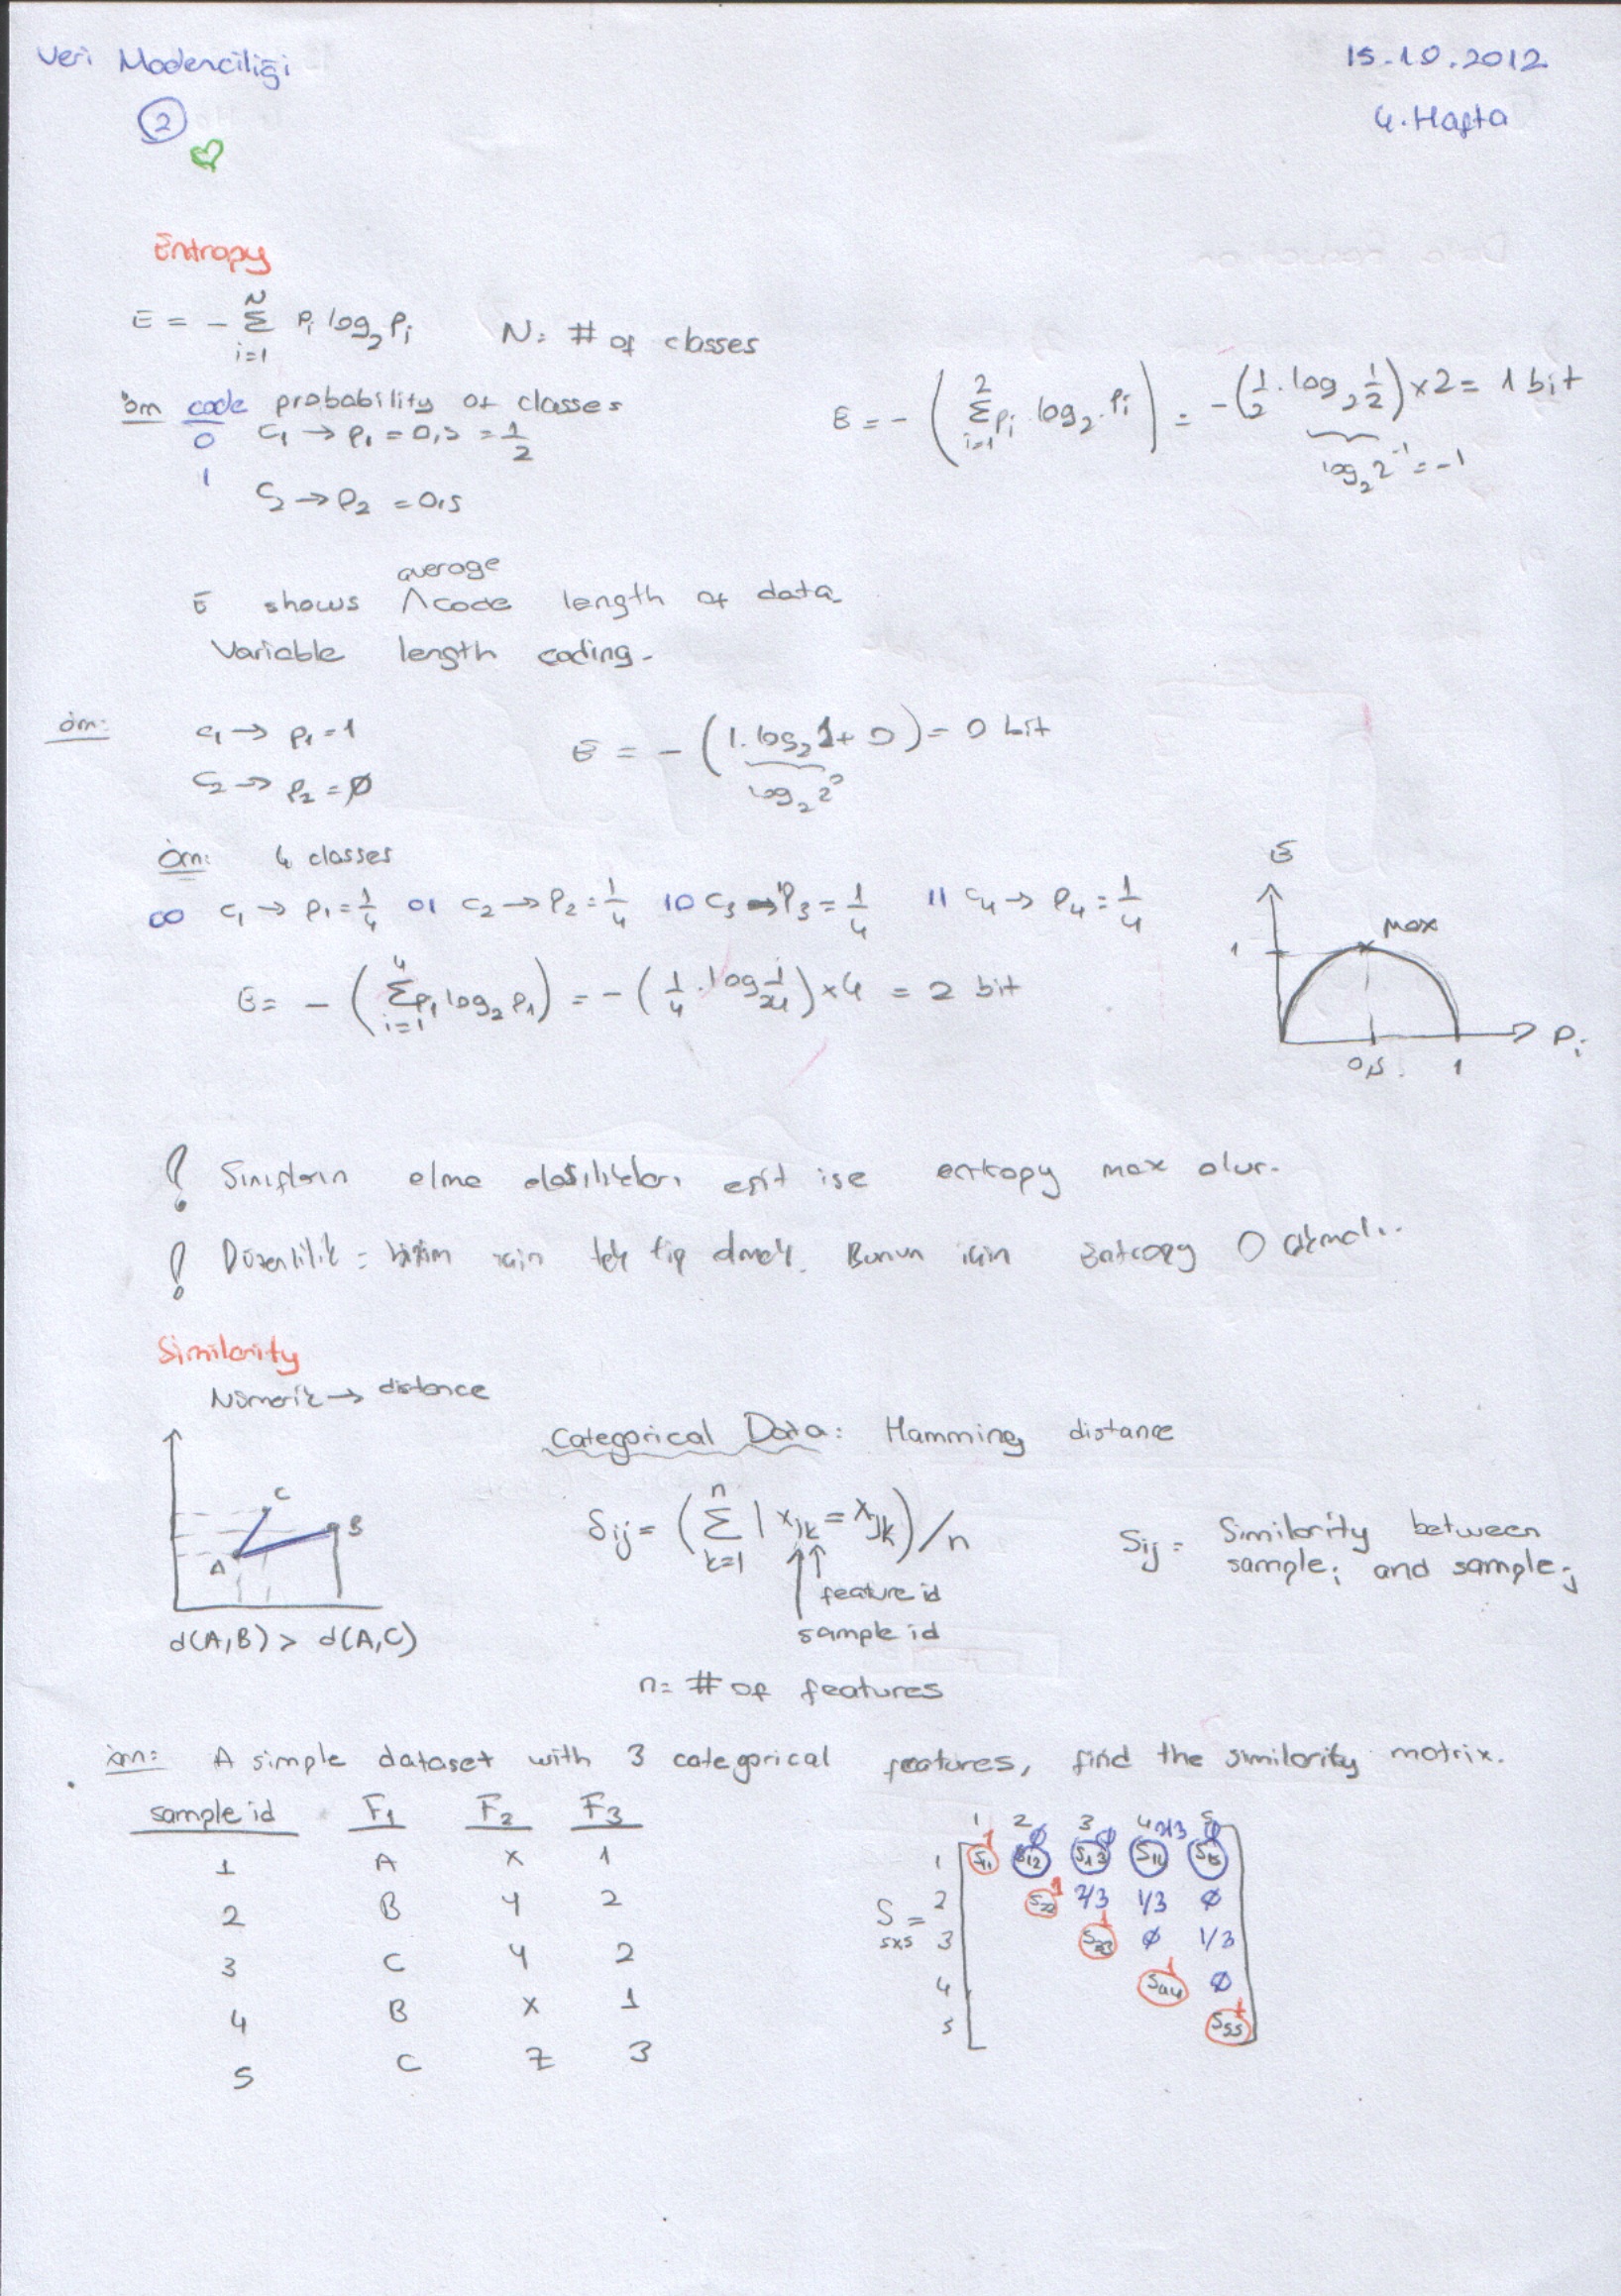 Veri Madenciliği
15.10.2012
2
4. Hafta
Entropy
E = - Σ_{i=1}^{N} p_i log_2 p_i    N: # of classes
örn code probability of classes
0 c_1 → p_1 = 0,5 = 1/2
1 c_2 → p_2 = 0,5
E = - ( Σ_{i=1}^{2} p_i log_2 . p_i ) = - ( 1/2 . log_2 1/2 ) x 2 = 1 bit
log_2 2^{-1} = -1
average
E shows ∧code length of data.
Variable length coding.
örn: c_1 → p_1 = 1
c_2 → p_2 = ∅
E = - ( 1. log_2 1 + 0 ) = 0 bit
log_2 2^0
Örn: 4 classes
00 c_1 → p_1 = 1/4 01 c_2 → p_2 = 1/4 10 c_3 → p_3 = 1/4 11 c_4 → p_4 = 1/4
E = - ( Σ_{i=1}^{4} p_i log_2 p_i ) = - ( 1/4 . log_2 1/4 ) x 4 = 2 bit
E
max
1
0,5 1 p_i
! Sınıfların olma olasılıkları eşit ise entropy max olur.
! Düzenlilik = bizim için tek tip olmak. Bunun için Entropy 0
Similarity
Nümerik → distance
C
B
A
d(A,B) > d(A,C)
Categorical Data: Hamming distance
S_ij = ( Σ_{k=1}^{n} | x_ik = x_jk ) / n
S_ij = Similarity between
sample_i and sample_j
feature id
sample id
n = # of features
örn: A simple dataset with 3 categorical features, find the similarity matrix.
sample id F_1 F_2 F_3
1 A X 1
2 B Y 2
3 C Y 2
4 B X 1
5 C Z 3
1 2 3 4 5
1 ∅ ∅ 2/3 ∅
1 S_11 S_12 S_13 S_14 S_15
2 S_22 1 2/3 1/3 ∅
S = 5x5
3 S_33 1 ∅ 1/3
4 S_44 1 ∅
5 S_55 1